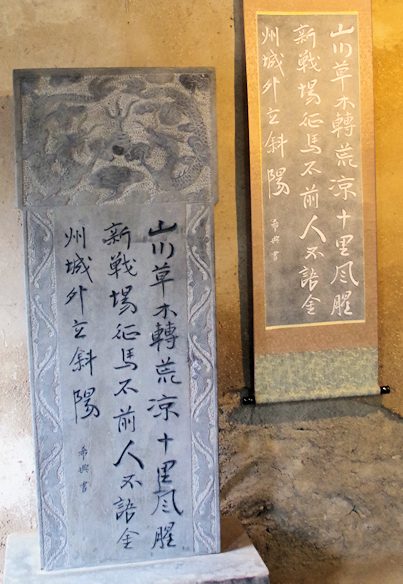 山川草木轉荒涼十里風腥
新戰場征馬不前人不語金
州城外立斜陽
希典書
山川草木轉荒涼十里風腥
新戰場征馬不前人不語金
州城外立斜陽
希典書